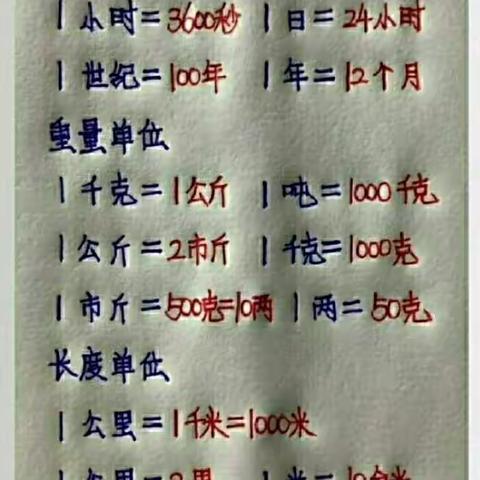 1小时=3600秒 1日=24小时
1世纪=100年 1年=12个月
重量单位
1千克=1公斤 1吨=1000千克
1公斤=2市斤 1千克=1000克
1市斤=500克=10两 1两=50克
长度单位
1公里=1千米=1000米
1公里=2里 1米=10分米